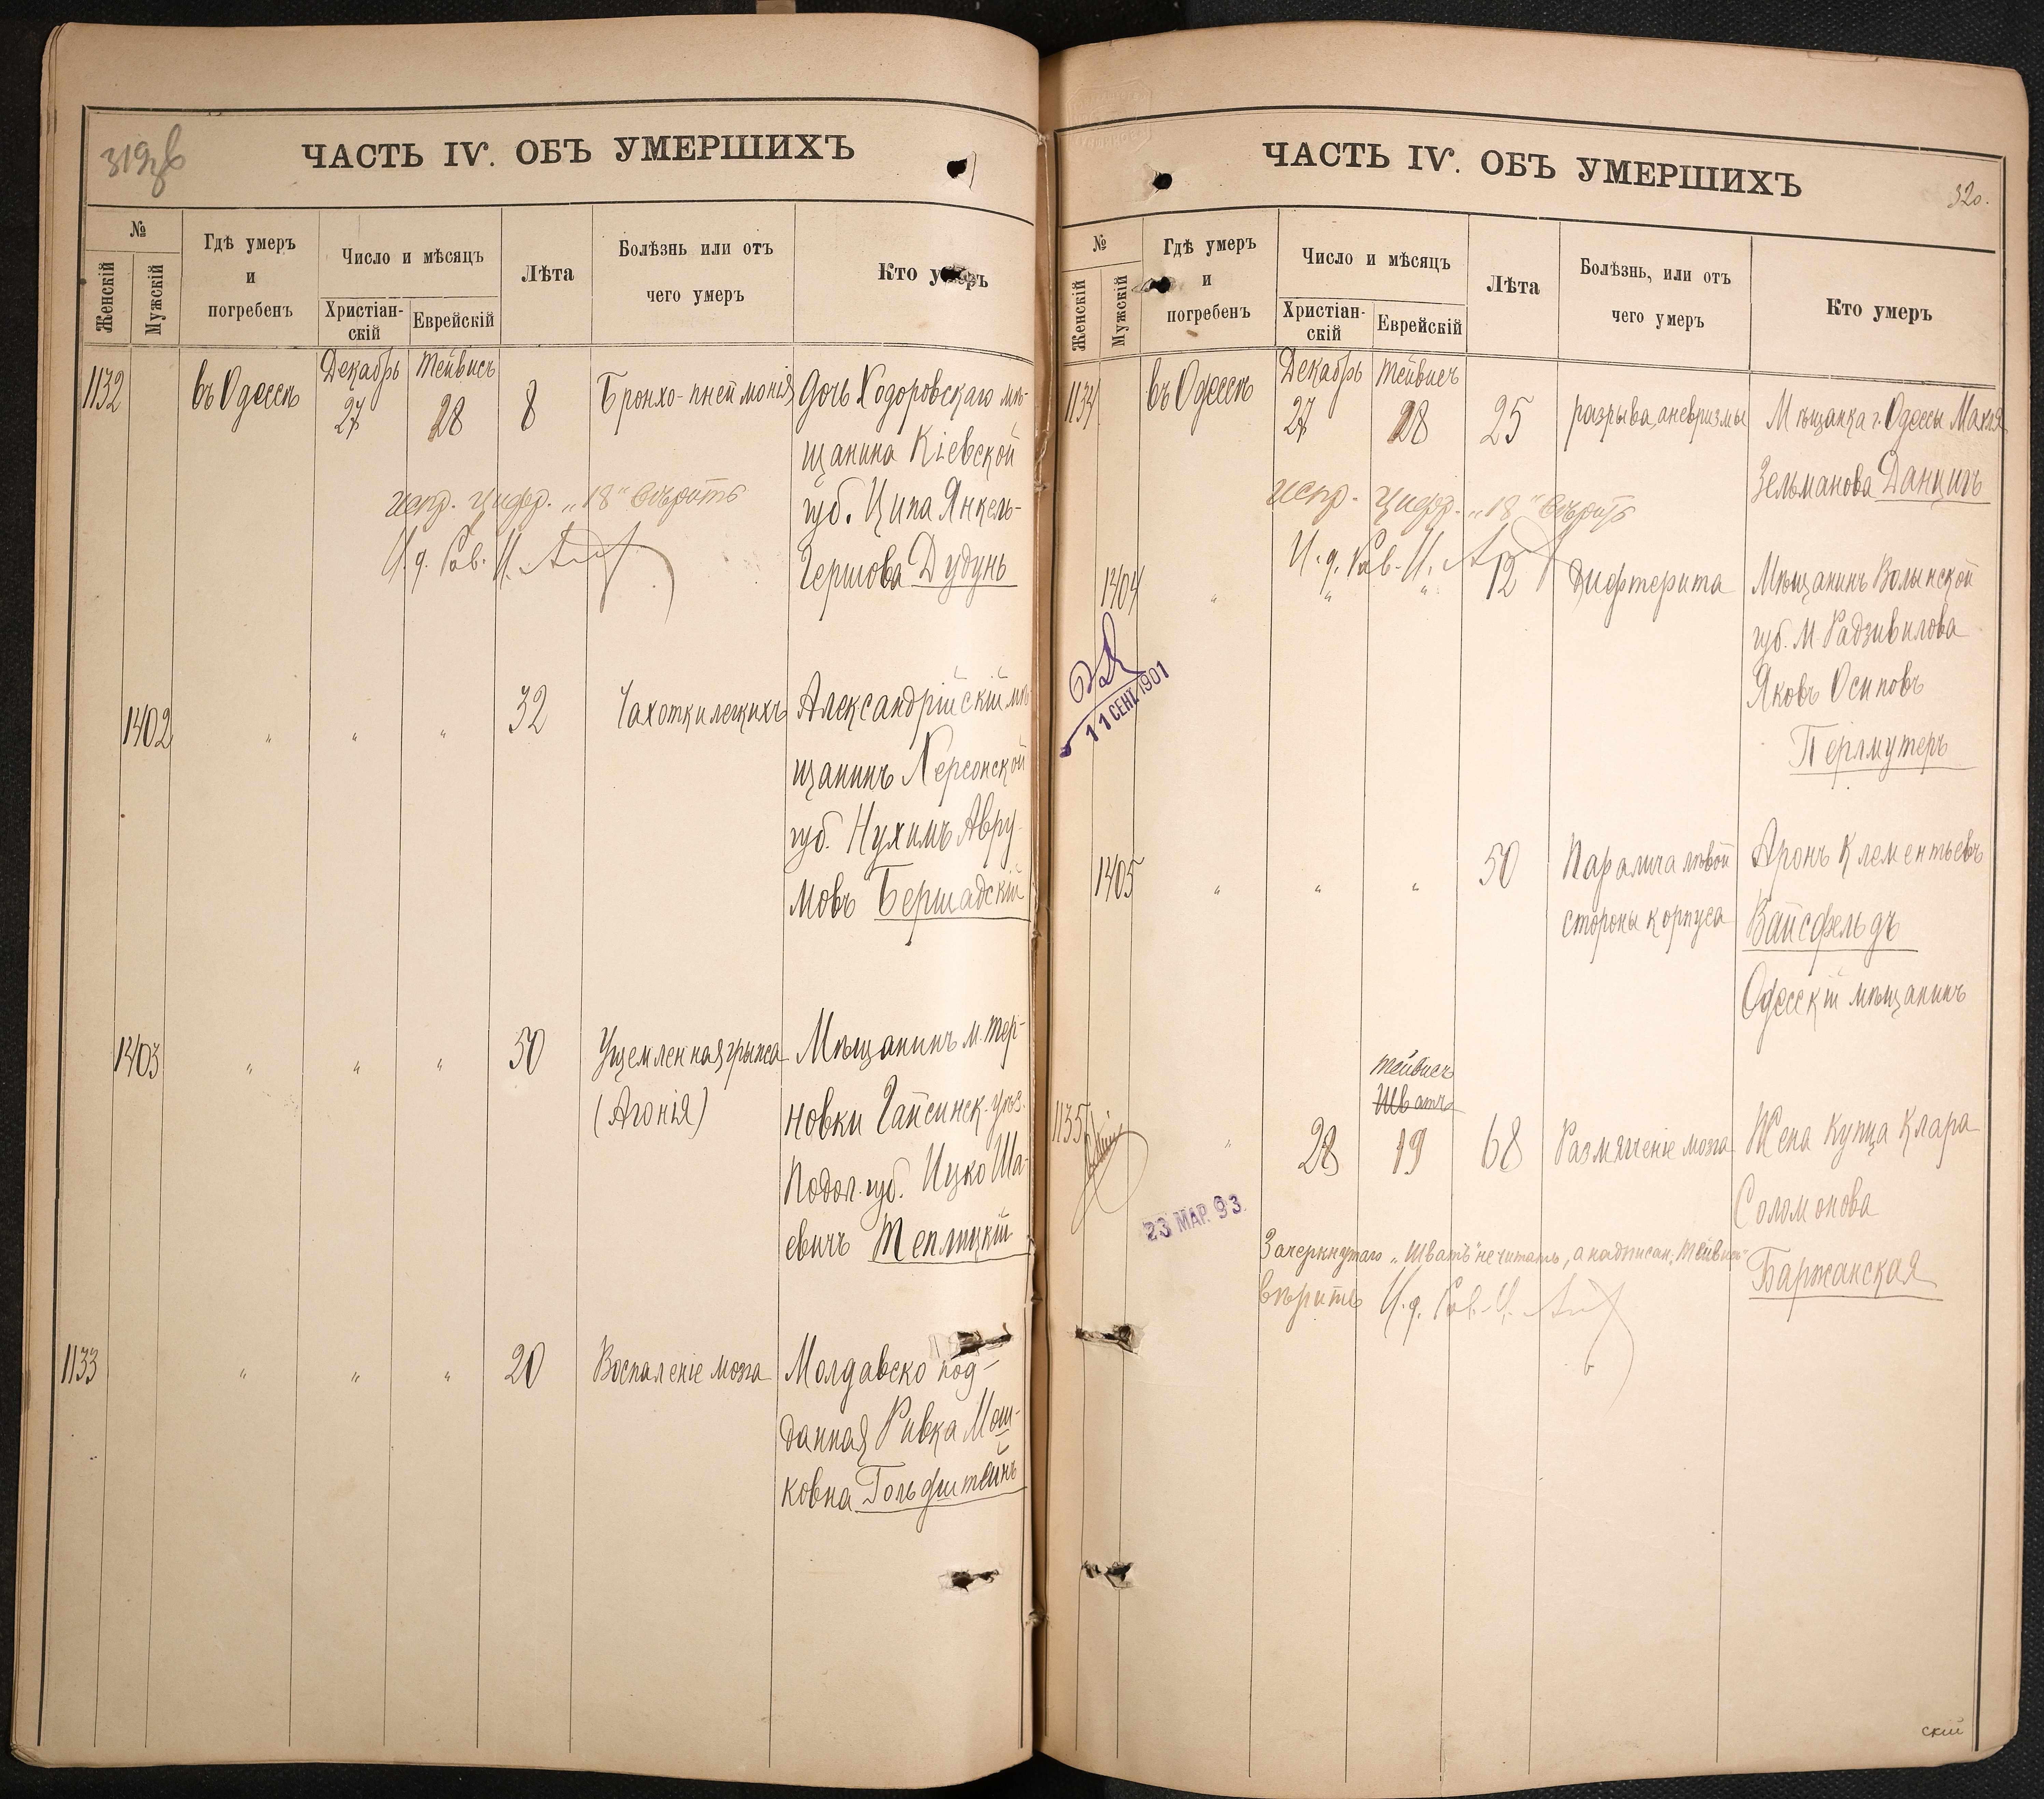 319 об
ЧАСТЬ IV. ОБЪ УМЕРШИХЪ
№
Женскій
Мужскій
Гдѣ умеръ
и
погребенъ
Число и мѣсяцъ
Христіан-
скій
Еврейскій
Лѣта
Болѣзнь или отъ
чего умеръ
Кто умеръ
1132
въ Одессѣ
Декабрь
27
Тейвисъ
18
8
Бронхо-пнеймонія
Дочь Ходоровскаго мѣ-
щанина Кіевской
губ. Ципа Янкель-
Гершова Дудунь
испр. цифр. „18" вѣрить
И. д. Рав. И.
1402
„ „ „
32
Чахотки легкихъ
Александрійскій мѣ-
щанинъ Херсонской
губ. Нухимъ Авру-
мовъ Бершадскій
1403
„ „ „
50
Ущемленная грыжа
(Агонія)
Мѣщанинъ м. Тер-
новки Гайсинск. уѣз.
Подол. губ. Ицко Ша-
евичъ Теплицкій
1133
„ „ „
20
Воспаленіе мозга
Молдавско под-
данная Ривка Мош-
ковна Гольдштейнъ
ЧАСТЬ IV. ОБЪ УМЕРШИХЪ
320.
№
Женскій
Мужскій
Гдѣ умеръ
и
погребенъ
Число и мѣсяцъ
Христіан-
скій
Еврейскій
Лѣта
Болѣзнь, или отъ
чего умеръ
Кто умеръ
1134
въ Одессѣ
Декабрь
27
Тейвисъ
18
25
разрыва аневризмы
Мѣщанка г. Одессы Махля
Зельманова Данцигъ
испр. цифр. „18" вѣрить
И. д. Рав. И.
1404
„ „ „
12
Дифтерита
Мѣщанинъ Волынской
губ. м. Радзивилова
Яковъ Осиповъ
Перлмутеръ
11 СЕНТ. 1901
1405
„ „ „
50
Паралича лѣвой
стороны корпуса
Аронъ Клементьевъ
Вайсфельдъ
Одесскій мѣщанинъ
1135
„
28
Тейвисъ
Шватъ
19
68
Размягченіе мозга
Жена купца Клара
Соломонова
Баржанская
23 МАР. 93.
Зачеркнутаго „Шватъ" не читать, а надписан. „Тейвисъ"
вѣрить И. д. Рав. И.
скій